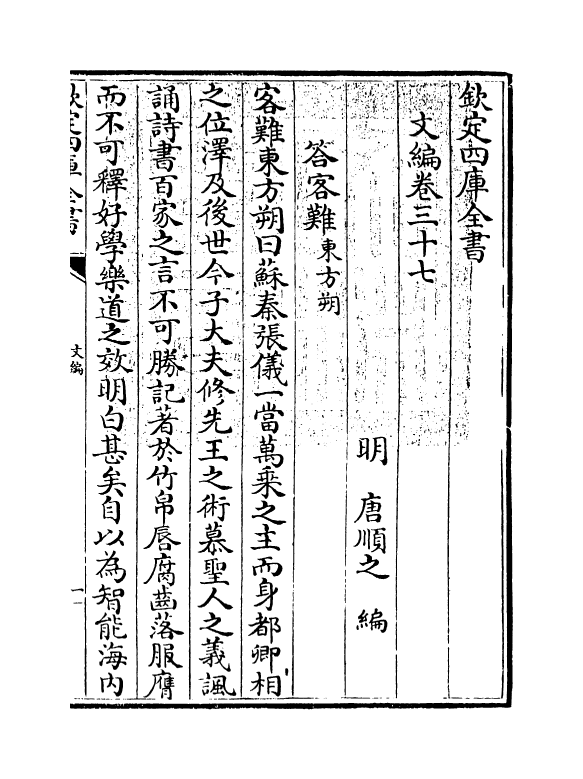 欽定四庫全書
文編卷三十七
明 唐順之 編
答客難 東方朔
客難東方朔曰蘇秦張儀一當萬乘之主而身都卿相
之位澤及後世今子大夫修先王之術慕聖人之義諷
誦詩書百家之言不可勝記著於竹帛唇腐齒落服膺
而不可釋好學樂道之效明白甚矣自以為智能海内
欽定四庫全書
文編
一